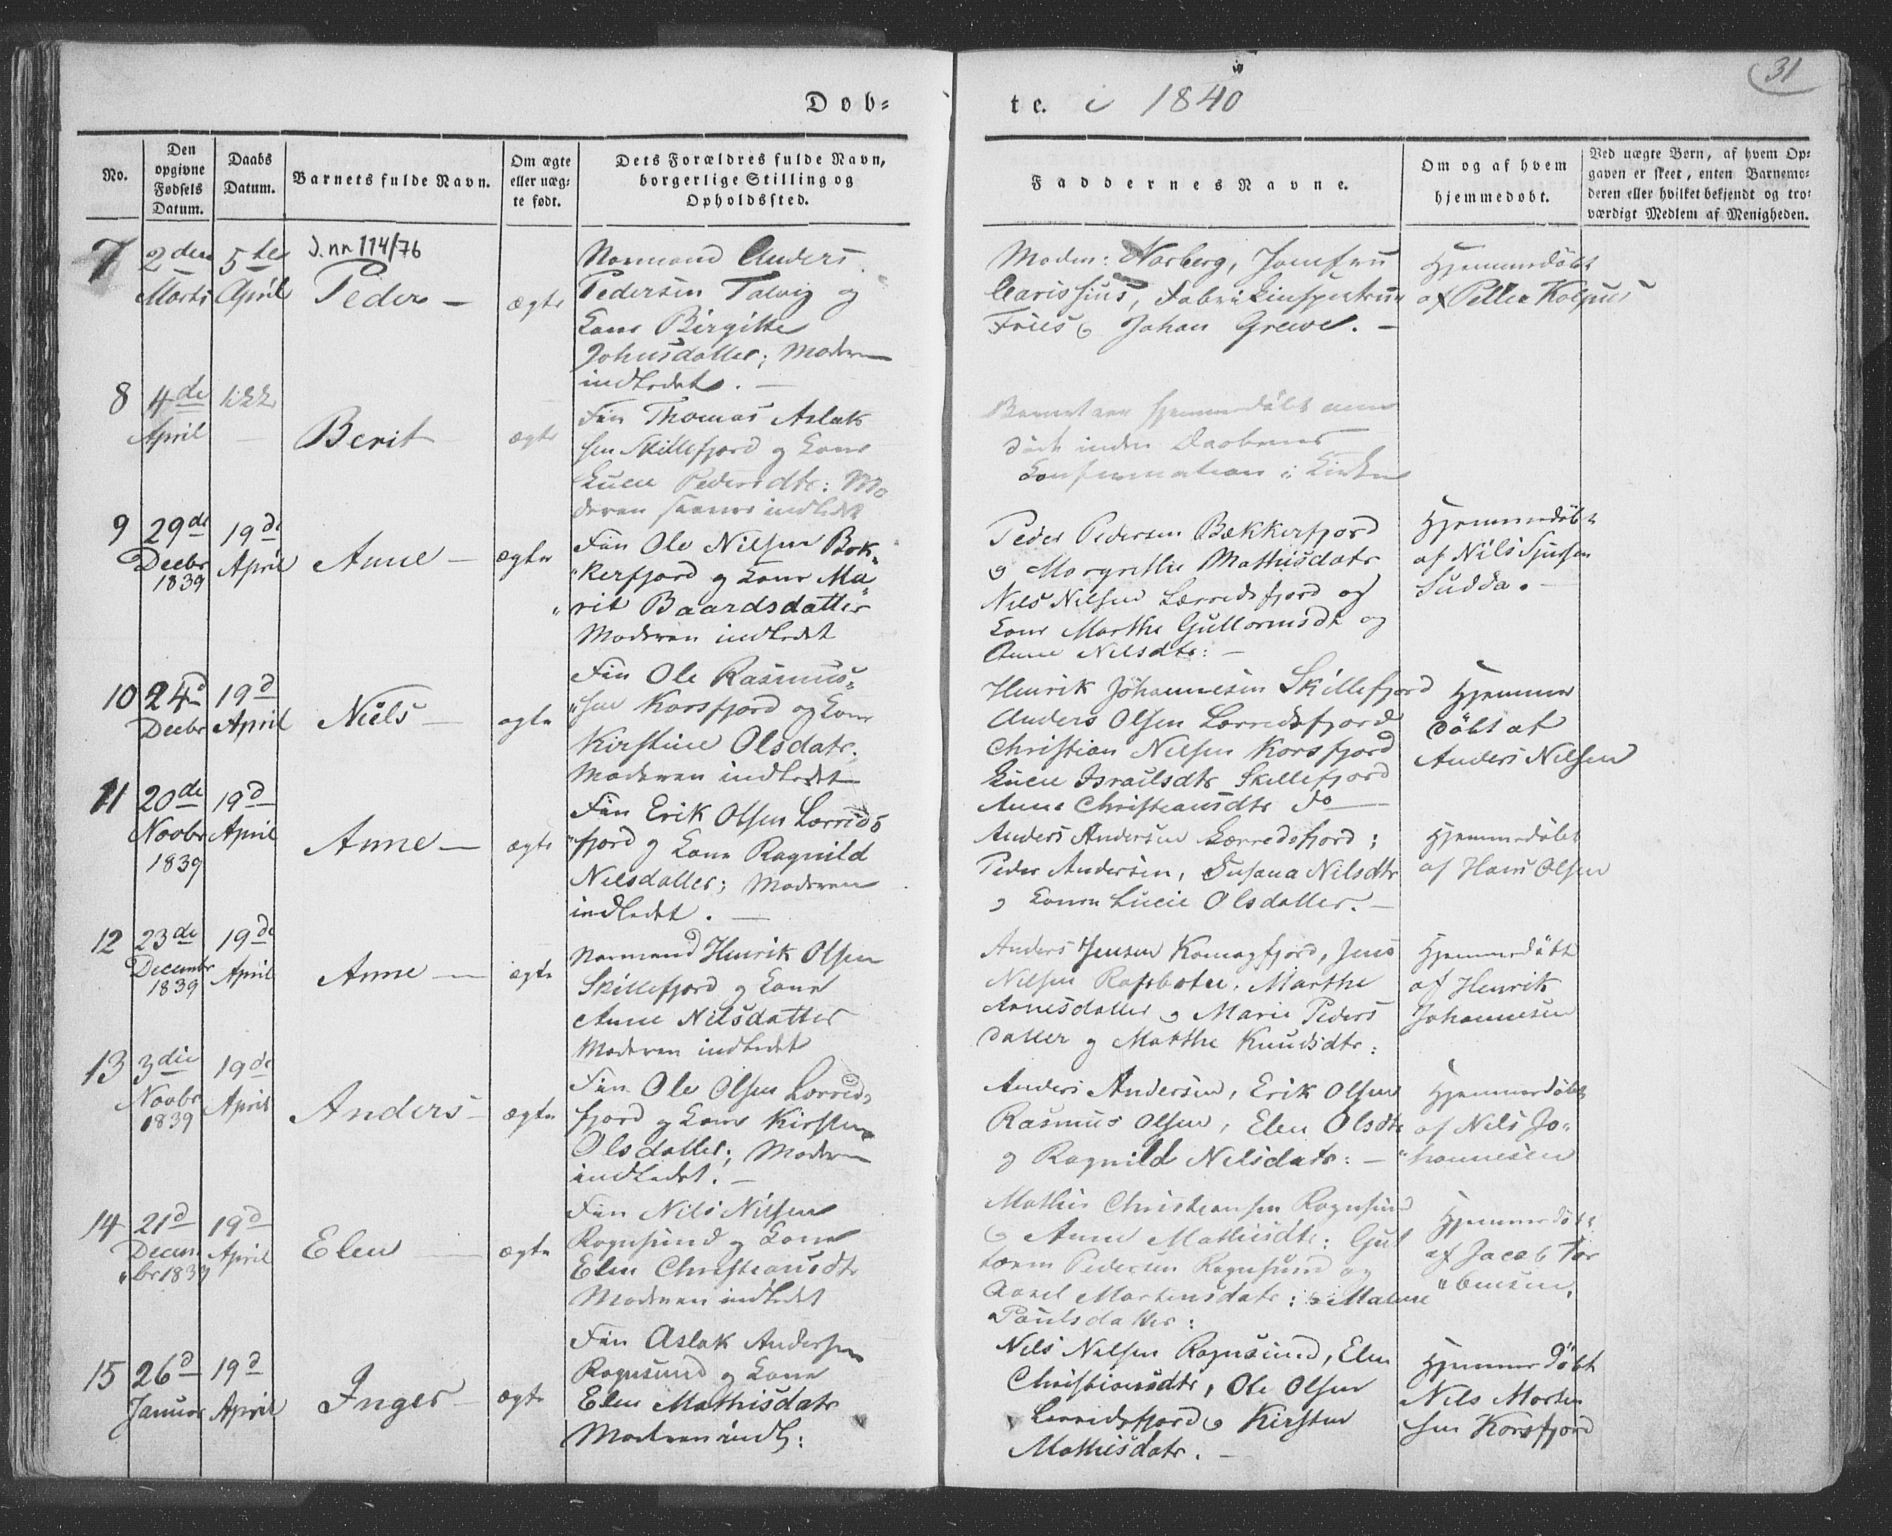 31
Dob-
te. i 1840
No.
Den opgivne Fødsels Datum.
Daabs Datum.
Barnets fulde Navn.
Om ægte eller uæg-
te født.
Dets Forældres fulde Navn,
borgerlige Stilling og
Opholdssted.
Faddernes Navne.
Om og af hvem
hjemmedøbt.
Ved uægte Børn, af hvem Op-
gaven er skeet, enten Barnemo-
deren eller hvilket bekjendt og tro-
værdigt Medlem af Menigheden.
7
2den
Marts
5te
April
J.nr 114/76
Peder —
ægte
Normand Anders
Pedersen Talvig og
Kone Birgitte
Johnsdatter; Moderen
indledet. —
Madm: Norberg, Jomfru
Clarissius,
Fries og Johan Grewe. —
Hjemmedøbt
af Petter Kolpus
8
4de
April
Berit
ægte
Fin Thomas Aslak
sen Skillefjord og Kone
Lucie Pedersdtr: Mo
deren indledet
Barnet var hjemmedøbt men
døde inden Daabens
Confirmation i Kirken
9
29de
Decbr
1839
19de
April
Anne —
ægte
Fin Ole Nilsen Bek-
"kerfjord og Kone Ma"
"rit Baardsdatter
Moderen indledet
Peder Pedersen Bækkerfjord
og Margrethe Mathisdatr
Nils Nilsen Lerredsfjord og
Kone Marthe Guttormsdt og
Anne Nilsdtr: —
Hjemmedøbt
af Nils Sjursen
Sudda. —
10
24d
Decbr
19d
April
Niels —
ægte
Fin Ole Rasmus-
"sen Korsfjord og Kone
Kirstine Olsdatr.
Moderen indledet
Henrik Johannesen Skillefjord
Anders Olsen Lerredsfjord
Christian Nilsen Korsfjord
Lucie Israilsdtr Skillefjord
Anne Christiansdtr do
Hjemme
døbt af
Anders Nilsen
11
20de
Novbr
1839
19d
April
Anne —
ægte
Fin Erik Olsen Lerreds
"fjord og Kone Ragnild
Nilsdatter; Moderen
indledet. —
Anders Andersen Lerredsfjord;
Peder Andersen, Susana Nilsdtr
og Konen Lucie Olsdatter. —
Hjemmedøbt
af Hans Olsen
12
23de
Decembr
1839
19de
April
Anne —
ægte
Normand Henrik Olsen
Skillefjord og Kone
Anne Nilsdatter
Moderen indledet
Anders Jensen Komagfjord, Jens
Nilsen Rafsbotn. Marthe
Arnesdatter og Marie Peders
datter og Marthe Knudsdtr:
Hjemmedøbt
af Henrik
Johannesen
13
3die
Novbr
1839
19de
April
Anders —
ægte
Fin Ole Olsen Lerreds
fjord og Kone Kirsten
Olsdatter; Moderen
indledet. —
Anders Andersen, Erik Olsen
Rasmus Olsen, Elen Olsdtr
og Ragnild Nilsdatr: —
Hjemmedøbt
af Nils Jo-
"hannesen
14
21d
Decem
"br 1839
19d
April
Elen —
ægte
Fin Nils Nilsen
Rognsund og Kone
Elen Christiansdtr
Moderen indledet
Mathis Christiansen Rognsund
og Anne Mathisdtr: Gut
torm Pedersen Rognsund og
Mortensdatr: og Malene
Poulsdatter:
Hjemmedøbt
af Jacob Tor
"bensen.
15
26d
Januar
19d
April
Inger —
ægte
Fin Aslak Andersen
Rognsund og Kone
Elen Mathisdatr
Moderen indl:
Nils Nilsen Rognsund, Elen
Christiansdtr, Ole Olsen
Lerredsfjord og Kirsten
Mathisdatr. —
Hjemmedøbt
Nils Morten
sen Korsfjord